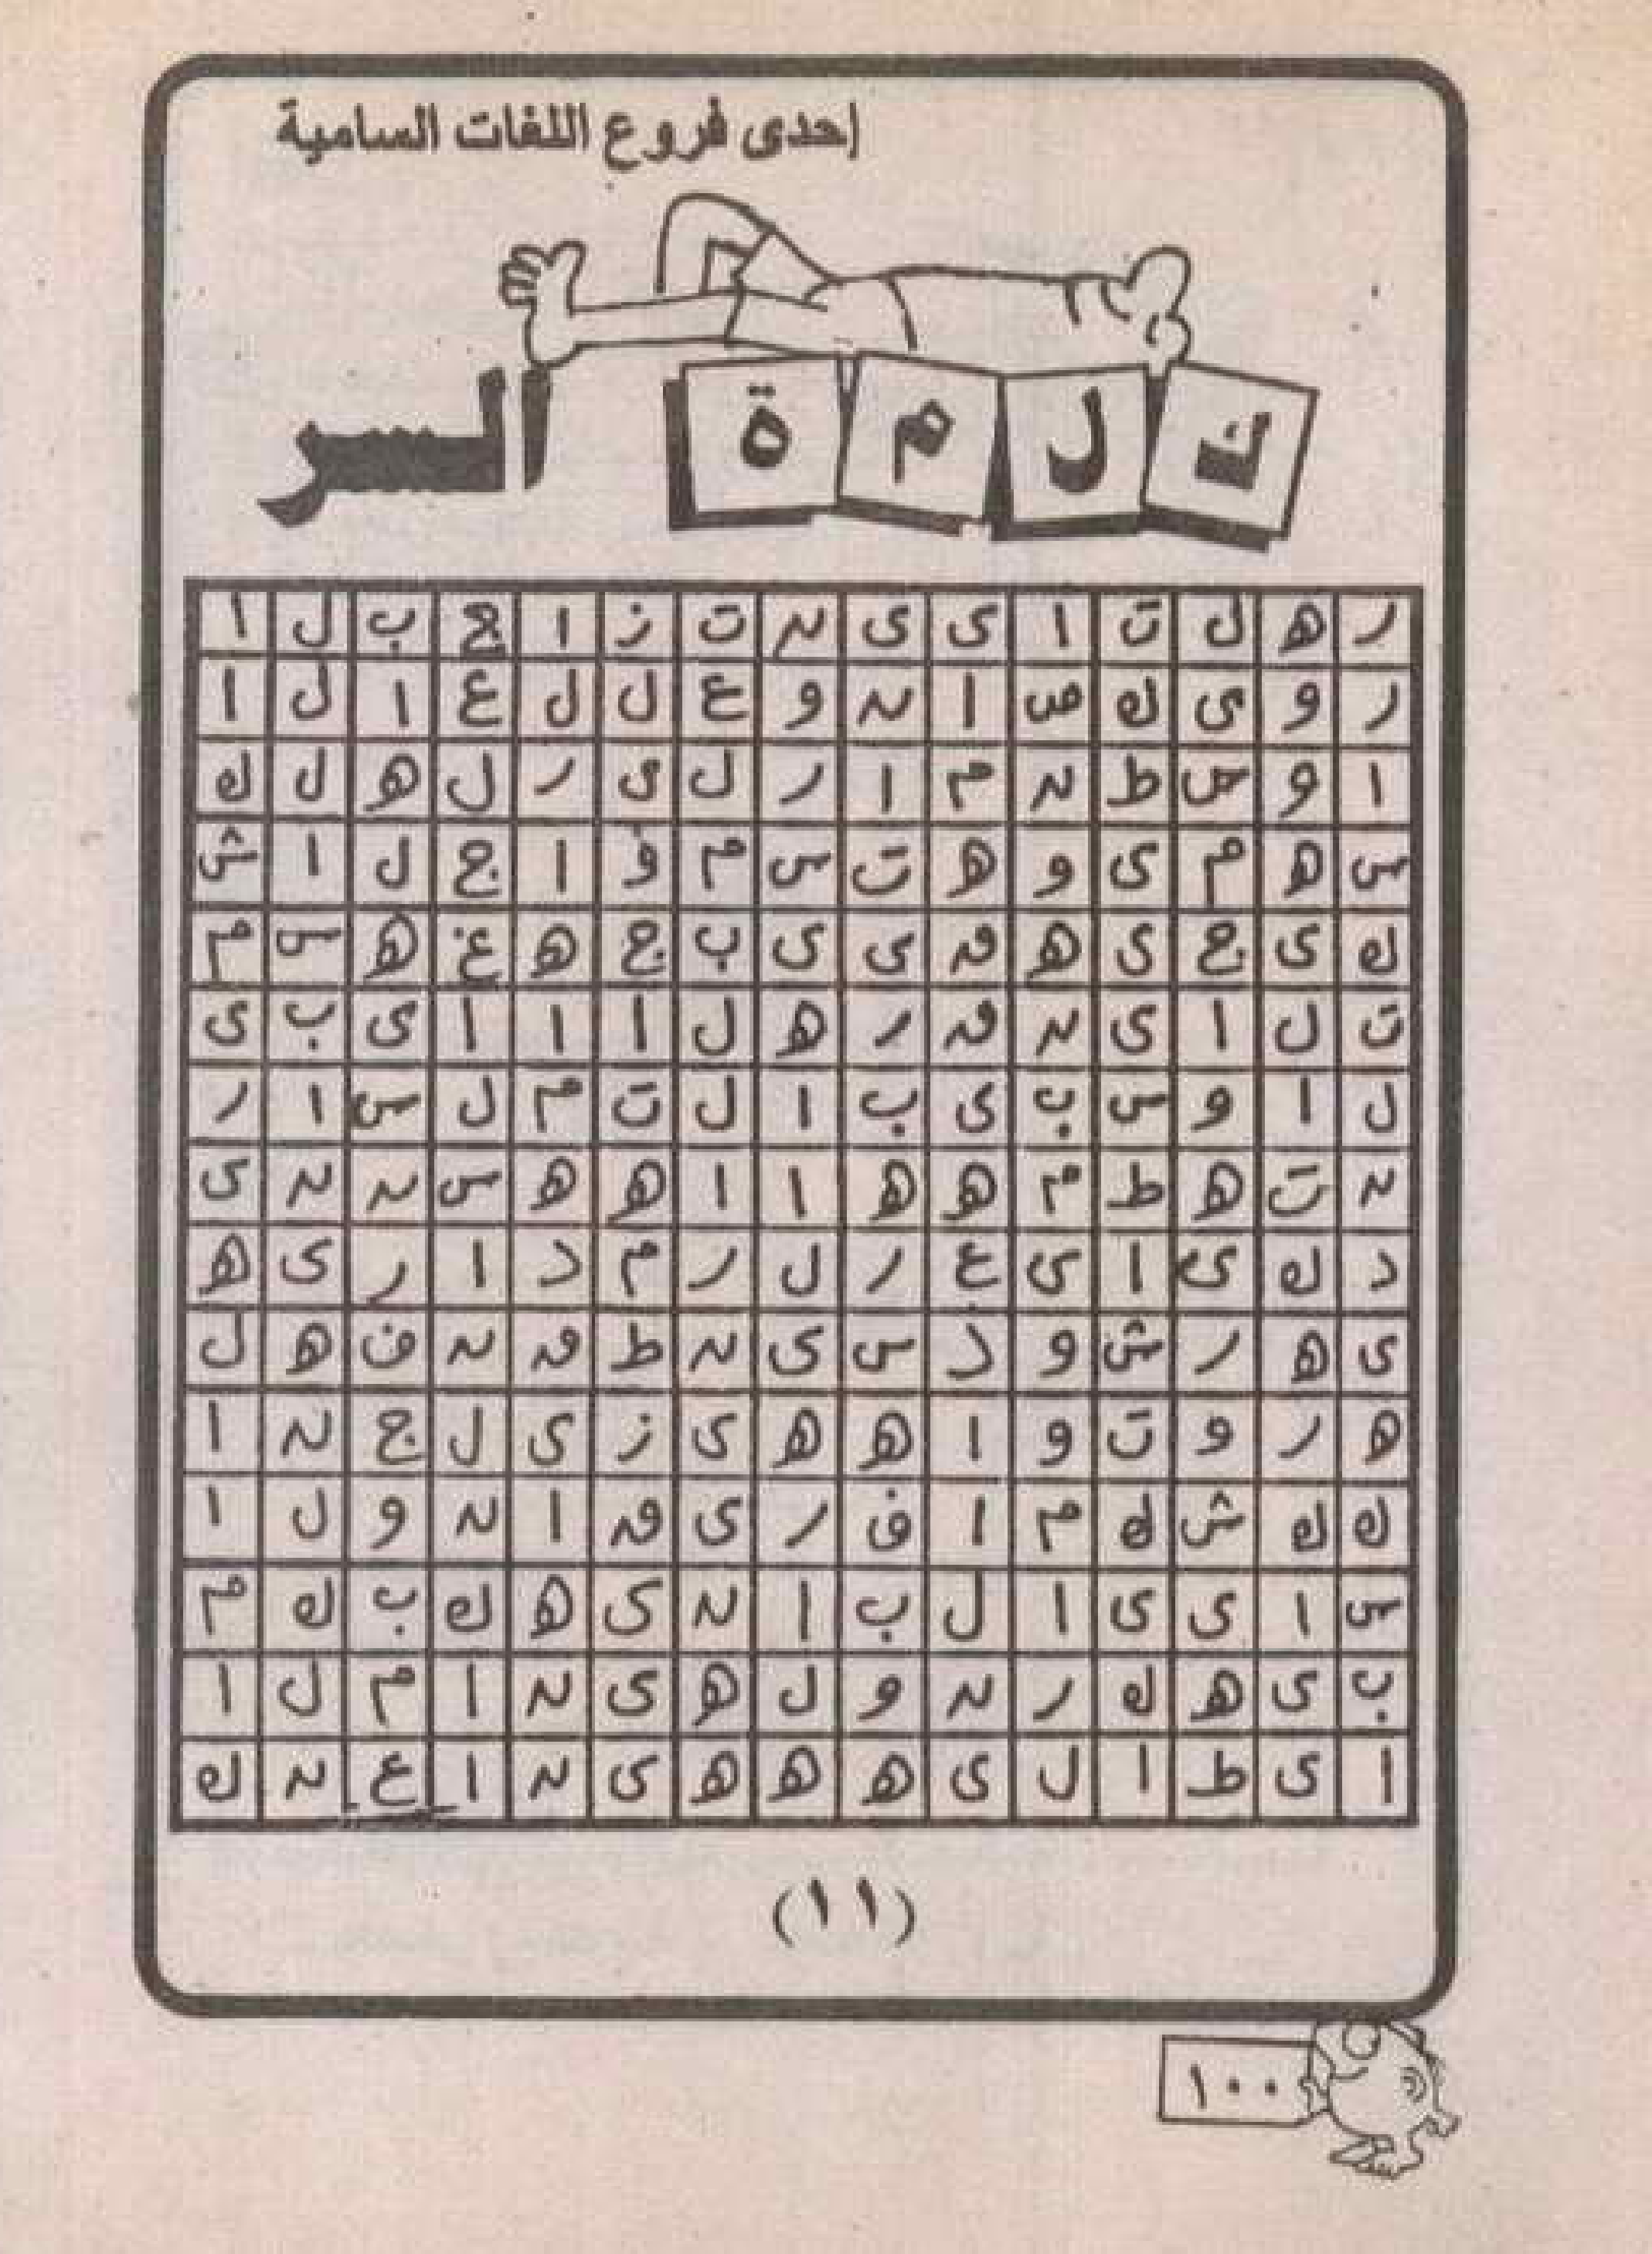 إحدى فروع اللغات السامية
كلمة السر
ر ه ل ت ا ى ى ن ت ز ا ج ب ل ا
ر و ى ك ص ا ن و ع ل ل ع ا ل ا
ا و س ط ن م ا ر ل ى ر ل ه ل ك
س ه م ى و ه ت س م و ا ج ل ا ش
ك ى ج ى ه ق ى ى ب ج ه غ ه س م
ت ل ا ى ن ق ر ه ل ا ا ا ى ب ى
ل ا و س ب ى ب ا ل ت م ل س ا ر
ن ت ه ط م ه ه ا ا ه ه س ن ن ى
د ك ى ا ى ع ر ل ر م د ا ر ى ه
ى ه ر ش و د س ى ن ط ق ن ف ه ل
ه ر و ت و ا ه ه ى ز ى ل ج ن ا
ك ك ش ك م ا ف ر ى ق ا ن و ل ا
س ا ى ى ا ل ب ا ن ى ه ك ب ك م
ب ى ه ك ر ن و ل ه ى ن ا م ل ا
ا ى ط ا ل ى ه ه ه ى ن ا ع ن ك
(١١)
١٠٠